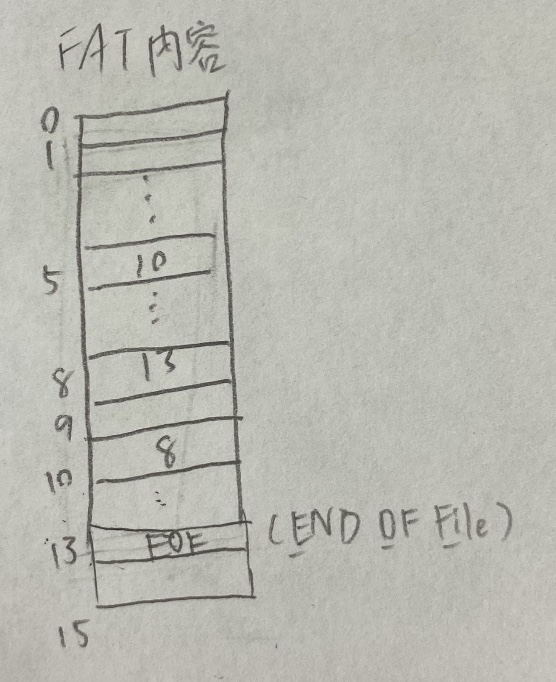 FAT内容
0
1
5 10
8 13
9
10 8
13 EOF (END OF File)
15